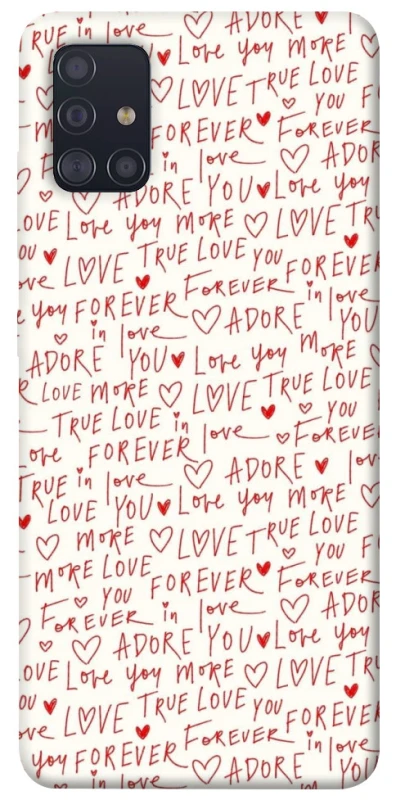 ADORE love
TRUE in love YOU Love you MORE
LOVE TRUE LOVE
YOU F
MORE FOREVER FOREVER
F in love ADOR
ADORE YOU Love you
OVE Love you MORE LOVE TRU
OU LOVE TRUE LOVE YOU FOREVER
ove FOREVER in love
you FOREVER ADORE YOU
in love
ADORE YOU Love you MORE
R LOVE MORE LOVE TRUE LOVE
TRUE LOVE in love YOU
ove FOREVER FOREVE
TRUE in love ADORE lov
LOVE YOU Love you MORE
MORE LOVE TRUE LOVE
YOU F
MORE LOVE FOREVER FOREVER
FOREVER in love ADOR
ADORE YOU Love you
OVE Love you MORE LOVE TRU
OU LOVE TRUE LOVE YOU FOREVER
ove FOREVER in love
you FOREVER ADORE YOU
in love